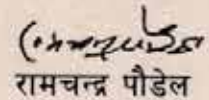 रामचन्द्र पौडेल